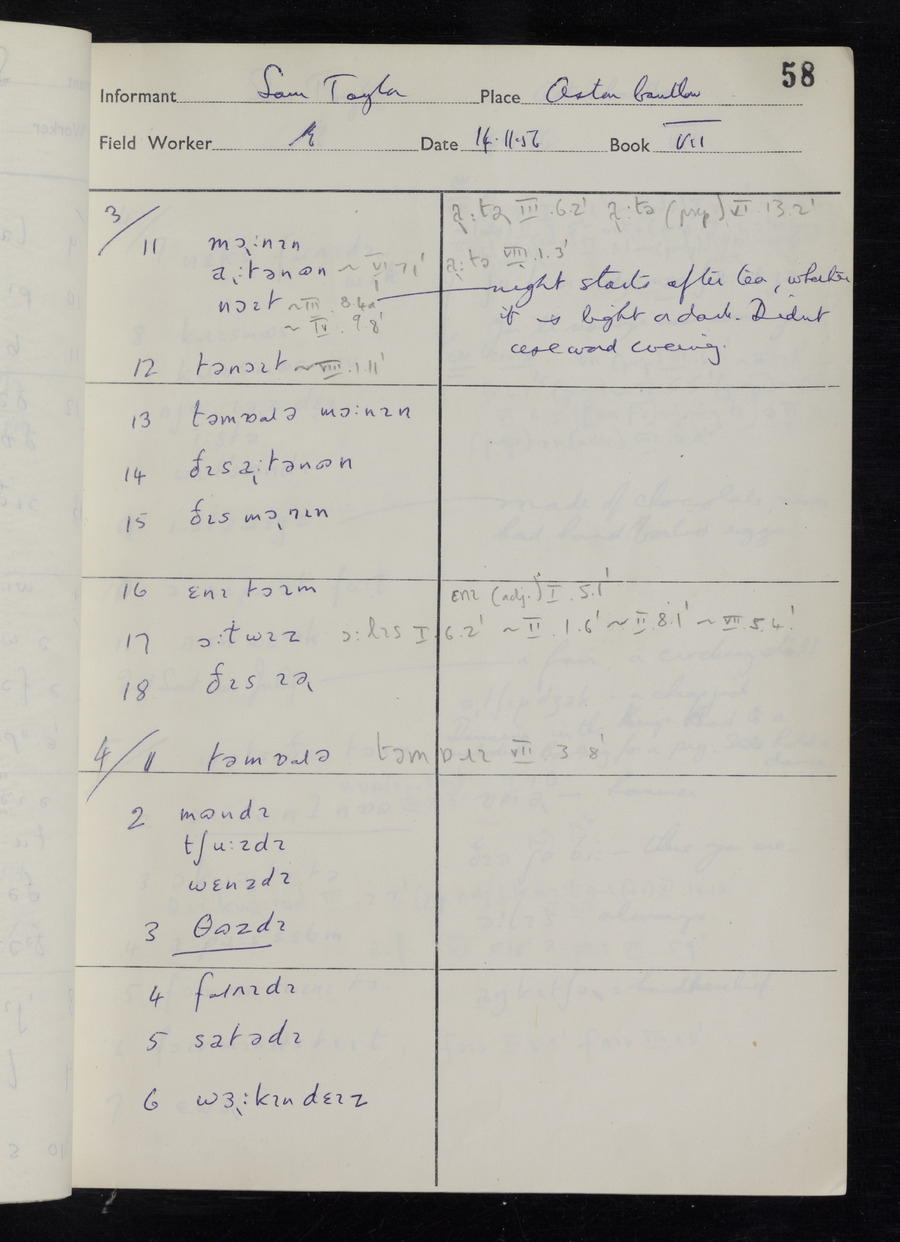 58
Informant Sam Taylor Place Aston Cantlow
Field Worker Date 14.11.56 Book VII
3/11 mɔ˞:nɪn
a˞:tənʊn ~ VI 7 1'
nɔɪt ~ III 8.4a
~ IV . 9 8'
12 tənɔɪt ~ VIII.1.11'
13 təmɒɹə mɔ:nɪn
14 ðɪs a˞:tənʊn
15 ðɪs mɔ˞nɪn
16 ɛnɪ tɔɪm
17 ɔ:twɪz ɔ:lɪs I 6.2' ~ II 1.6' ~ II 8.1' ~ VII 5.4'
18 ðɪs ɪə˞
4/1 təmɒɹə təmɒɹɪ VII 3 8'
2 mʊndɪ
tʃu:zdɪ
wɛnzdɪ
3 θəzdɪ
4 fɹɑɪdɪ
5 satədɪ
6 wɜ˞:kɪn dɛɪz
a˞:tə III .6.2' a˞:tə (prep) VI .13.2'
a˞:tə VIII.1.3'
night starts after tea, whether
it is light or dark. Didn't
use word evening.
ɛnɪ (adj.) I .5.1'